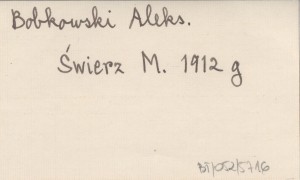 Bobkowski Aleks.
Świerz M. 1912 g
BT/052/5716